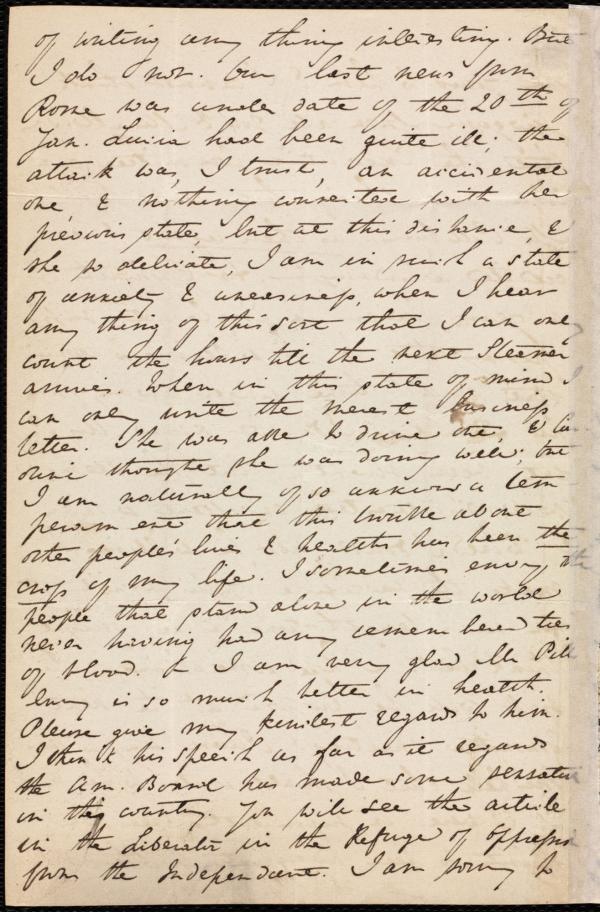 of writing any thing interesting. But
I do not. Our last news from
Rome was under date of the 20th of
Jan. Lucia had been quite ill; the
attack was, I trust, an accidental
one & nothing connected with her
previous state, but at this distance, &
she so delicate, I am in such a state
of anxiety & uneasiness, when I hear
any thing of this sort that I can only
count the hours till the next Steamer
arrives. When in this state of mind I
can only write the merest business
letter. She was able to drive out, &
thought she was doing well; but
I am naturally of so anxious a tem
perament that this trouble about
other people's lives & healths has been the
cross of my life. I sometimes envy the
people that stand alone in the world
never having had any remembered ties
of blood. I am very glad Mr Pill
bury is so much better in health.
Please give my kindest regards to him.
I think his speech as far as it regards
the Am. Board has made some sensation
in this country. You will see the article
in the Liberator in the Refuge of Oppression
from the Independent. I am sorry to